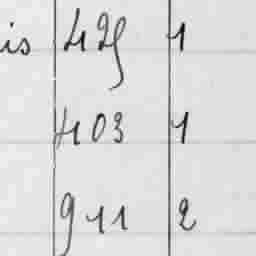 is 425 1
403 1
911 2